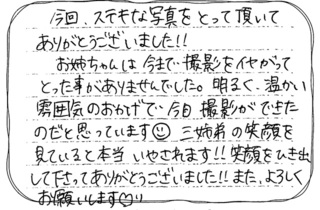 今回、ステキな写真をとって頂いて
ありがとうございました!!
お姉ちゃんは今まで撮影をイヤがって
とった事がありませんでした。明るく、温かい
雰囲気のおかげで今日撮影ができた
のだと思っています☺ 三姉弟の笑顔を
見ていると本当いやされます!! 笑顔をひき出
して下さってありがとうございました!! また、よろしく
お願いします♡!!